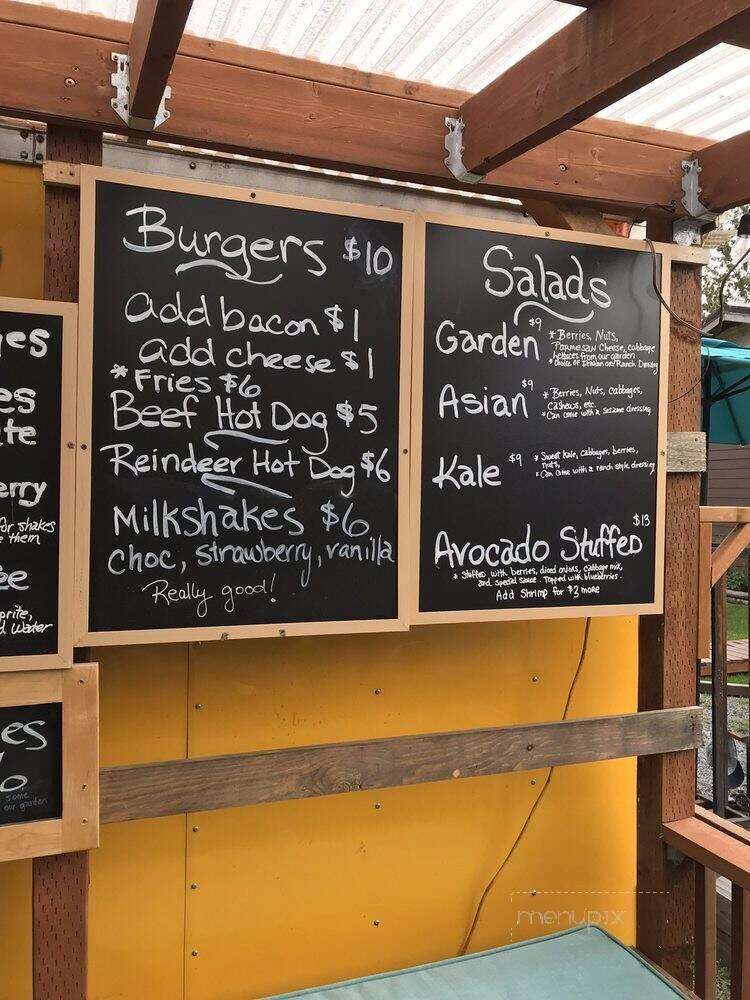 es
es
te
erry
for shakes
them
ee
prite,
d water
es
o
some
our garden
Burgers $10
add bacon $1
add cheese $1
* Fries $6
Beef Hot Dog $5
Reindeer Hot Dog $6
Milkshakes $6
choc, strawberry, vanilla
Really good!
Salads
Garden $9
* Berries, Nuts,
Parmesan Cheese, cabbage
lettuces from our garden
* choice of Italian or Ranch Dressing
Asian $9
* Berries, Nuts, Cabbages,
Cashews, etc.
* Can come with a sesame dressing
Kale $9
* Sweet kale, cabbages, berries,
nuts,
* Can come with a ranch style dressing
$13
Avocado Stuffed
* Stuffed with berries, diced onions, cabbage mix,
and special sauce. Topped with blueberries.
Add Shrimp for $3 more
menupix